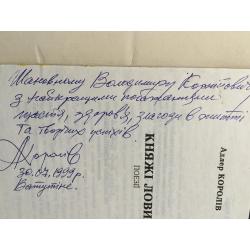 Шановному Володимиру
з найкращими побажаннями
щастя, здоров'я, злагоди в житті
та творчих успіхів.
30.07.1999 р.
Ватутіне.
Адлер КОРОЛІВ
КНЯЖІ ЛОВИ
ПОЕЗІЇ